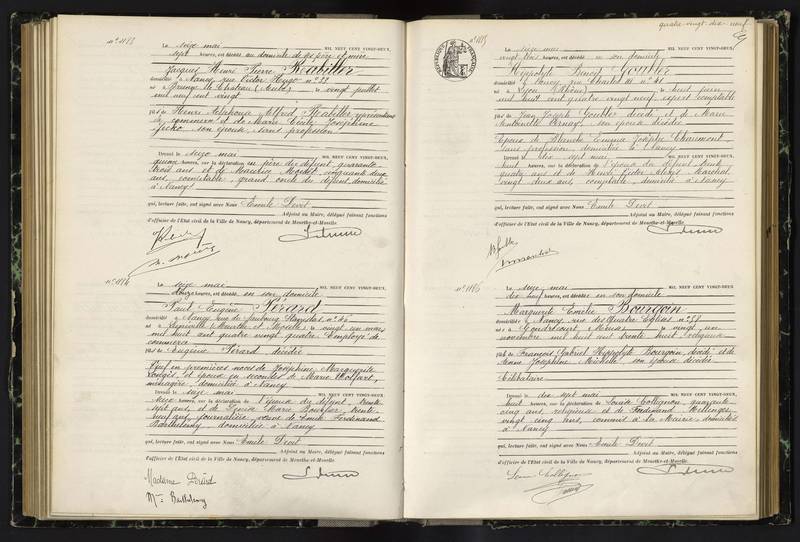 n° 1183
Le seize mai MIL NEUF CENT VINGT-DEUX,
sept heures, est décédé au domicile de ses père et mère
Jacques Henri Pierre Reabiller
domicilié à Nancy, rue Victor Hugo n° 22
né à (Aube), le vingt juillet
mil neuf cent vingt
fils de Henri Alphonse Alfred Reabiller, représentant
de commerce et de Marie Cécile Joséphine
son épouse, sans profession
Dressé le seize mai MIL NEUF CENT VINGT-DEUX,
quinze heures, sur la déclaration du père du défunt, quarante
trois ans et de Maurice cinquante deux
ans, comptable, grand oncle du défunt, domiciliés
à Nancy
qui, lecture faite, ont signé avec Nous Emile Devit
Adjoint au Maire, délégué faisant fonctions
d'officier de l'Etat civil de la Ville de Nancy, département de Meurthe-et-Moselle.
n° 1184
Le seize mai MIL NEUF CENT VINGT-DEUX,
douze heures, est décédé en son domicile
Paul Eugène Pérard
domicilié à Nancy, rue du faubourg Stanislas n° 46
né à Lunéville (Meurthe et Moselle), le vingt un mars
mil huit cent quatre vingt quatre, Employé de
commerce
fils de Eugène Pérard décédé
Veuf en premières noces de Joséphine Marguerite
et époux en secondes de Marie
ménagère, domiciliée à Nancy
Dressé le seize mai MIL NEUF CENT VINGT-DEUX,
seize heures, sur la déclaration de l'épouse du défunt, trente
sept ans, et de Louise Marie trente
neuf ans, journalière, veuve de Emile Ferdinand
Barthélemy, domiciliées à Nancy
qui, lecture faite, ont signé avec Nous Emile Devit
Adjoint au Maire, délégué faisant fonctions
d'officier de l'Etat civil de la Ville de Nancy, département de Meurthe-et-Moselle.
Madame Pérard
Mme Barthélemy
quatre-vingt dix-neuf
n° 1185
Le seize mai MIL NEUF CENT VINGT-DEUX,
vingt trois heures, est décédé en son domicile
Hippolyte Benoit Goutter
domicilié à Nancy, rue Charles III n° 41
né à Lyon (Rhône), le huit juin
mil huit cent quatre vingt neuf, expert comptable
fils de Jean Joseph Goutter décédé et de Marie
Antoinette son épouse décédée
Epoux de Blanche Emma Chaumont,
sans profession, domiciliée à Nancy
Dressé le dix sept mai MIL NEUF CENT VINGT-DEUX,
huit heures, sur la déclaration de l'épouse du défunt, trente
quatre ans et de Henri Victor Alexis Maréchal,
vingt deux ans, comptable, domiciliés à Nancy
qui, lecture faite, ont signé avec Nous Emile Devit
Adjoint au Maire, délégué faisant fonctions
d'officier de l'Etat civil de la Ville de Nancy, département de Meurthe-et-Moselle.
n° 1186
Le seize mai MIL NEUF CENT VINGT-DEUX,
dix huit heures, est décédée en son domicile
Marguerite Emélie Bourgoin
domiciliée à Nancy, rue des Quatre Eglises n° 58
née à Gondrecourt (Meuse), le vingt un
novembre mil huit cent trente huit, religieuse
fille de François Gabriel Hippolyte Bourgoin, décédé et de
Anne Joséphine son épouse décédée
Célibataire
Dressé le dix sept mai MIL NEUF CENT VINGT-DEUX,
huit heures, sur la déclaration de Louise Collignon, quarante
cinq ans, religieuse et de Ferdinand
vingt cinq ans, commis à la Mairie, domiciliés
à Nancy
qui, lecture faite, ont signé avec Nous Emile Devit
Adjoint au Maire, délégué faisant fonctions
d'officier de l'Etat civil de la Ville de Nancy, département de Meurthe-et-Moselle.
Louise Collignon